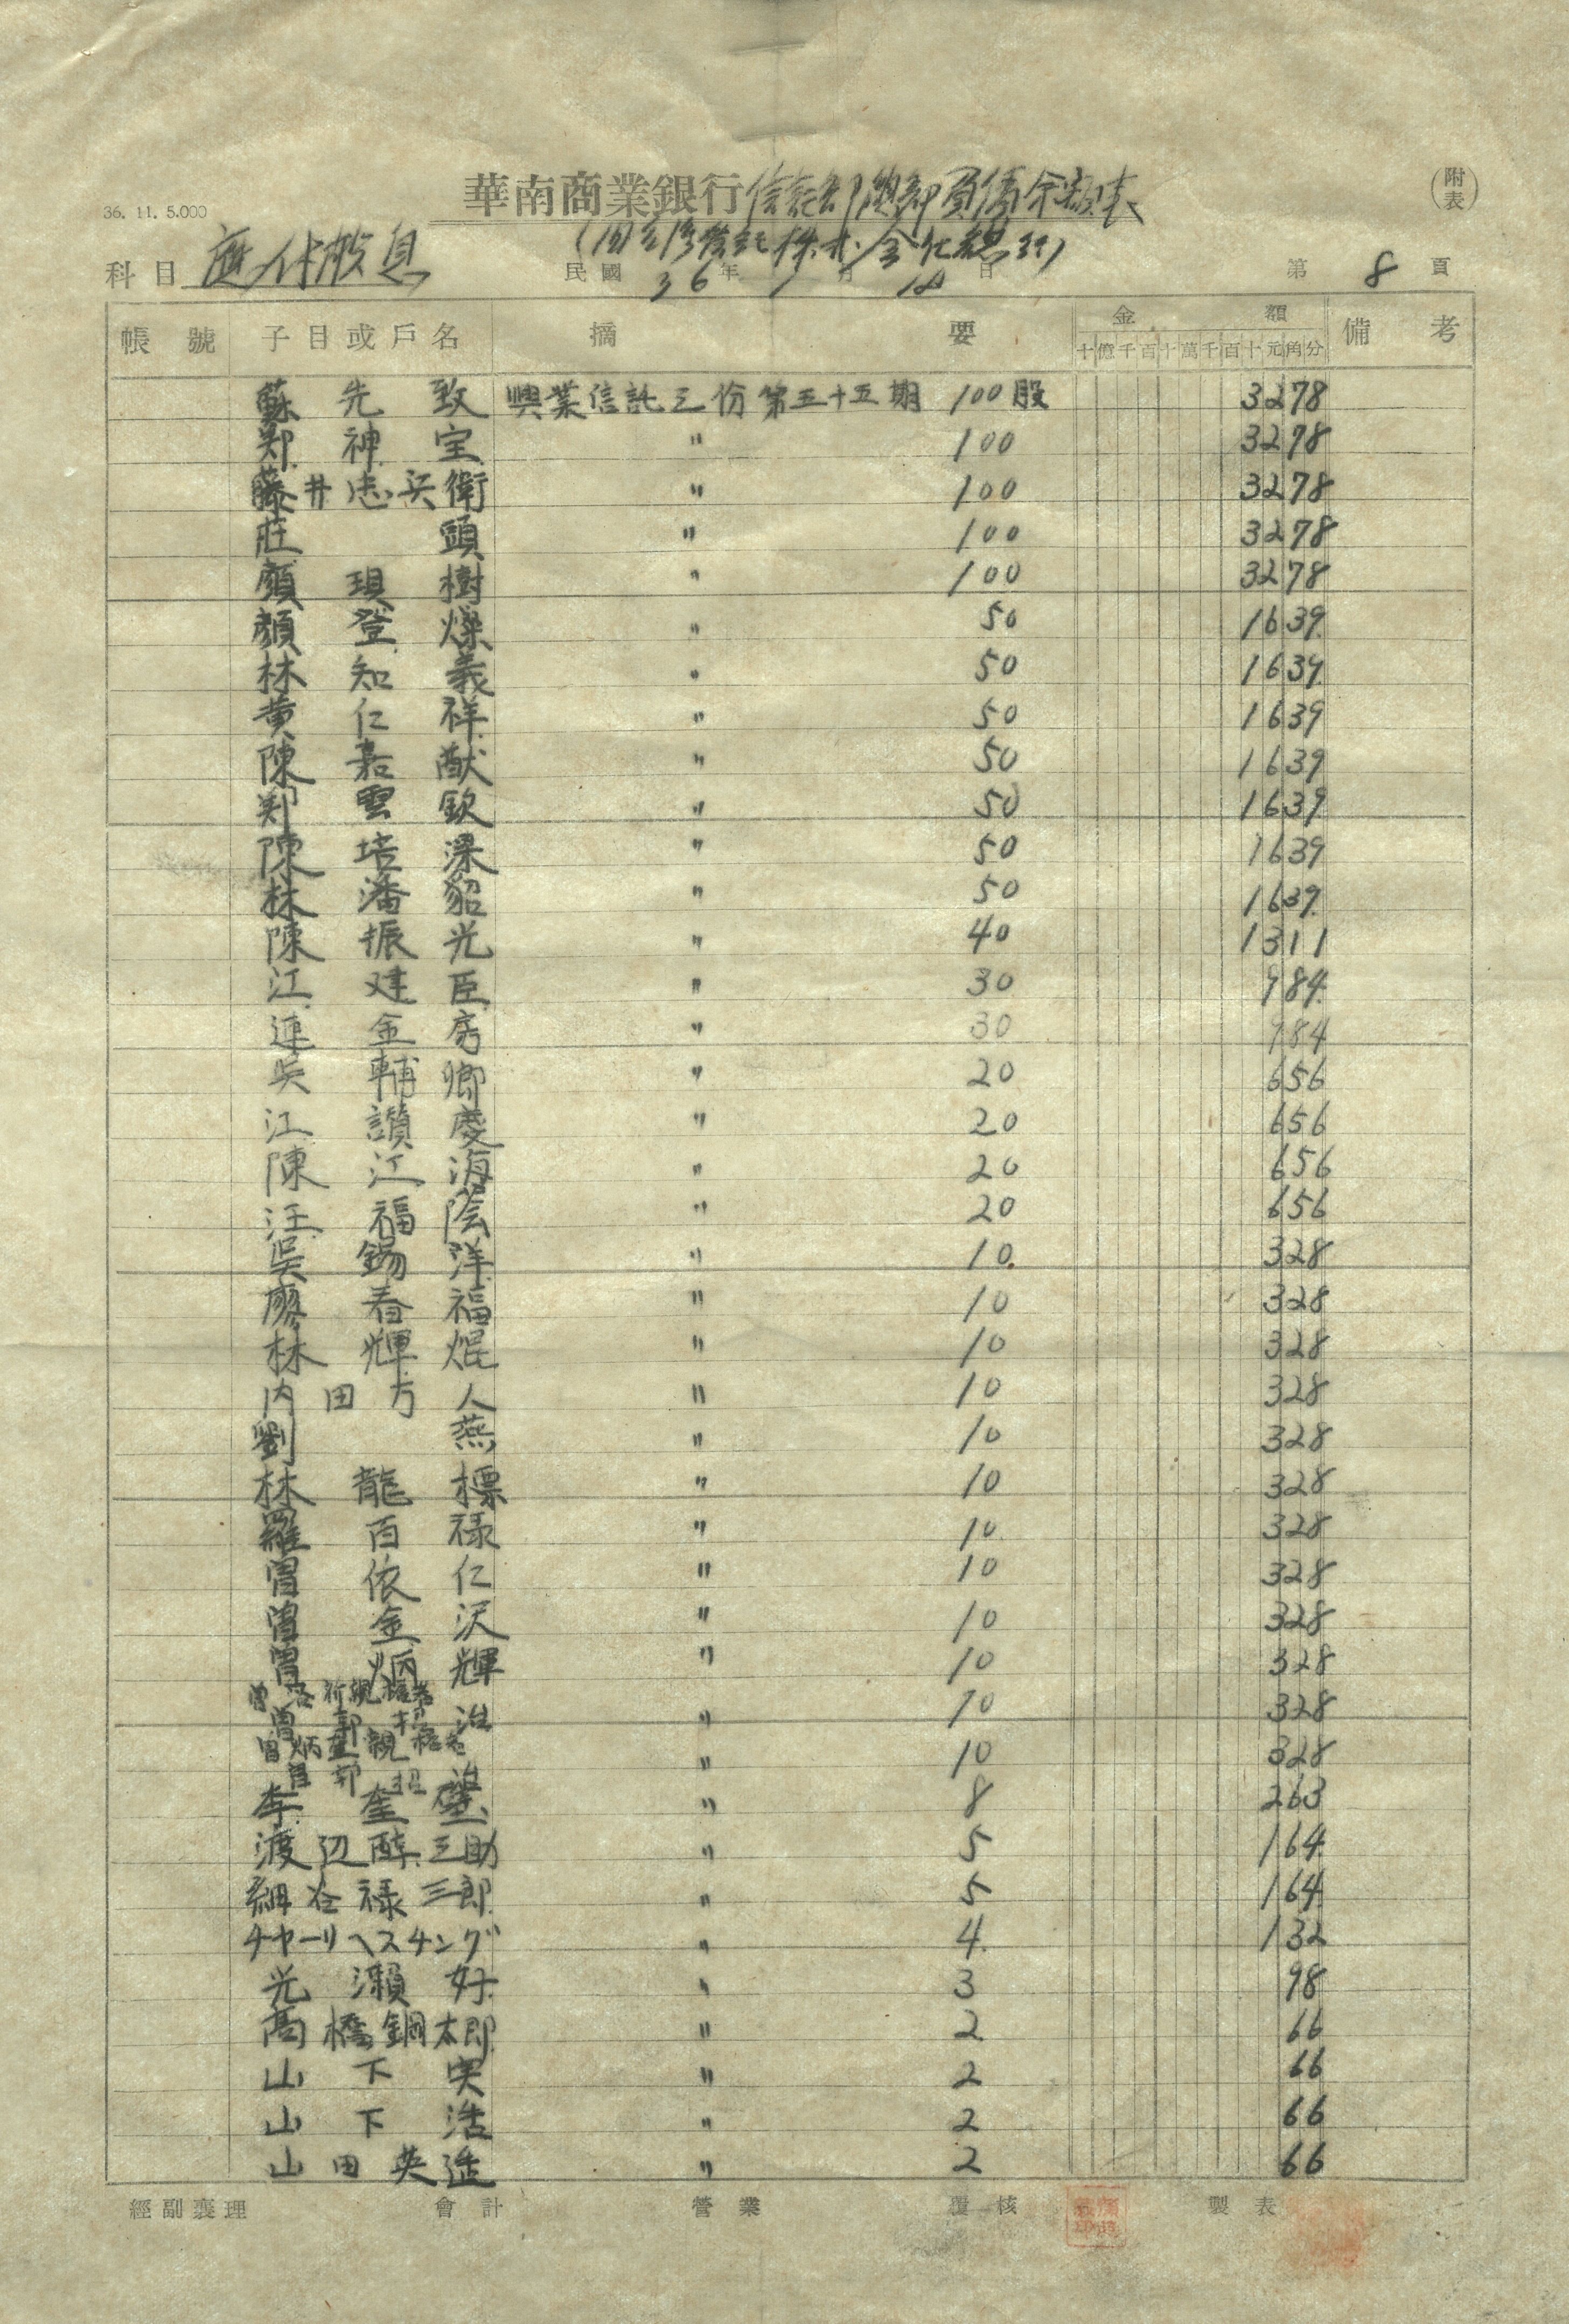 36. 11. 5.000
華南商業銀行信託部總部負債余額表
(附表)
科目 應付股息
民國 36年 月 18日
第 8 頁
帳號 子目或戶名 摘要 金額 備考
十億千百十萬千百十元角分
蘇先致 興業信託三份第五十五期 100股 3278
鄭神宝 〃 100 3278
藤井忠兵衛 〃 100 3278
莊頭 〃 100 3278
顏現樹 〃 100 3278
顏登燦 〃 50 1639
林知義 〃 50 1639
黄仁祥 〃 50 1639
陳嘉猷 〃 50 1639
鄭雲欽 〃 50 1639
陳培深 〃 50 1639
林潘貂 〃 50 1639
陳振光 〃 40 1311
江建臣 〃 30 984
連金房 〃 30 984
吳輔卿 〃 20 656
江讚慶 〃 20 656
陳江海 〃 20 656
汪福陰 〃 20 656
吳錫洋 〃 10 328
廖春福 〃 10 328
林輝焜 〃 10 328
内田方人 〃 10 328
劉燕 〃 10 328
林龍標 〃 10 328
羅百禄 〃 10 328
曾依仁 〃 10 328
曾金沢 〃 10 328
曾炳輝 〃 10 328
親權者
曾郭招治 〃 10 328
曾炳奎親權者
曾郭招治 〃 10 328
李奎璧 〃 8 263
渡辺醇三助 〃 5 164
細谷禄三郎 〃 5 164
チャーリヘスチング 〃 4 132
光瀨好 〃 3 98
高橋鋼太郎 〃 2 66
山下実 〃 2 66
山下浩 〃 2 66
山田英造 〃 2 66
經副襄理 會計 營業 覆核 製表